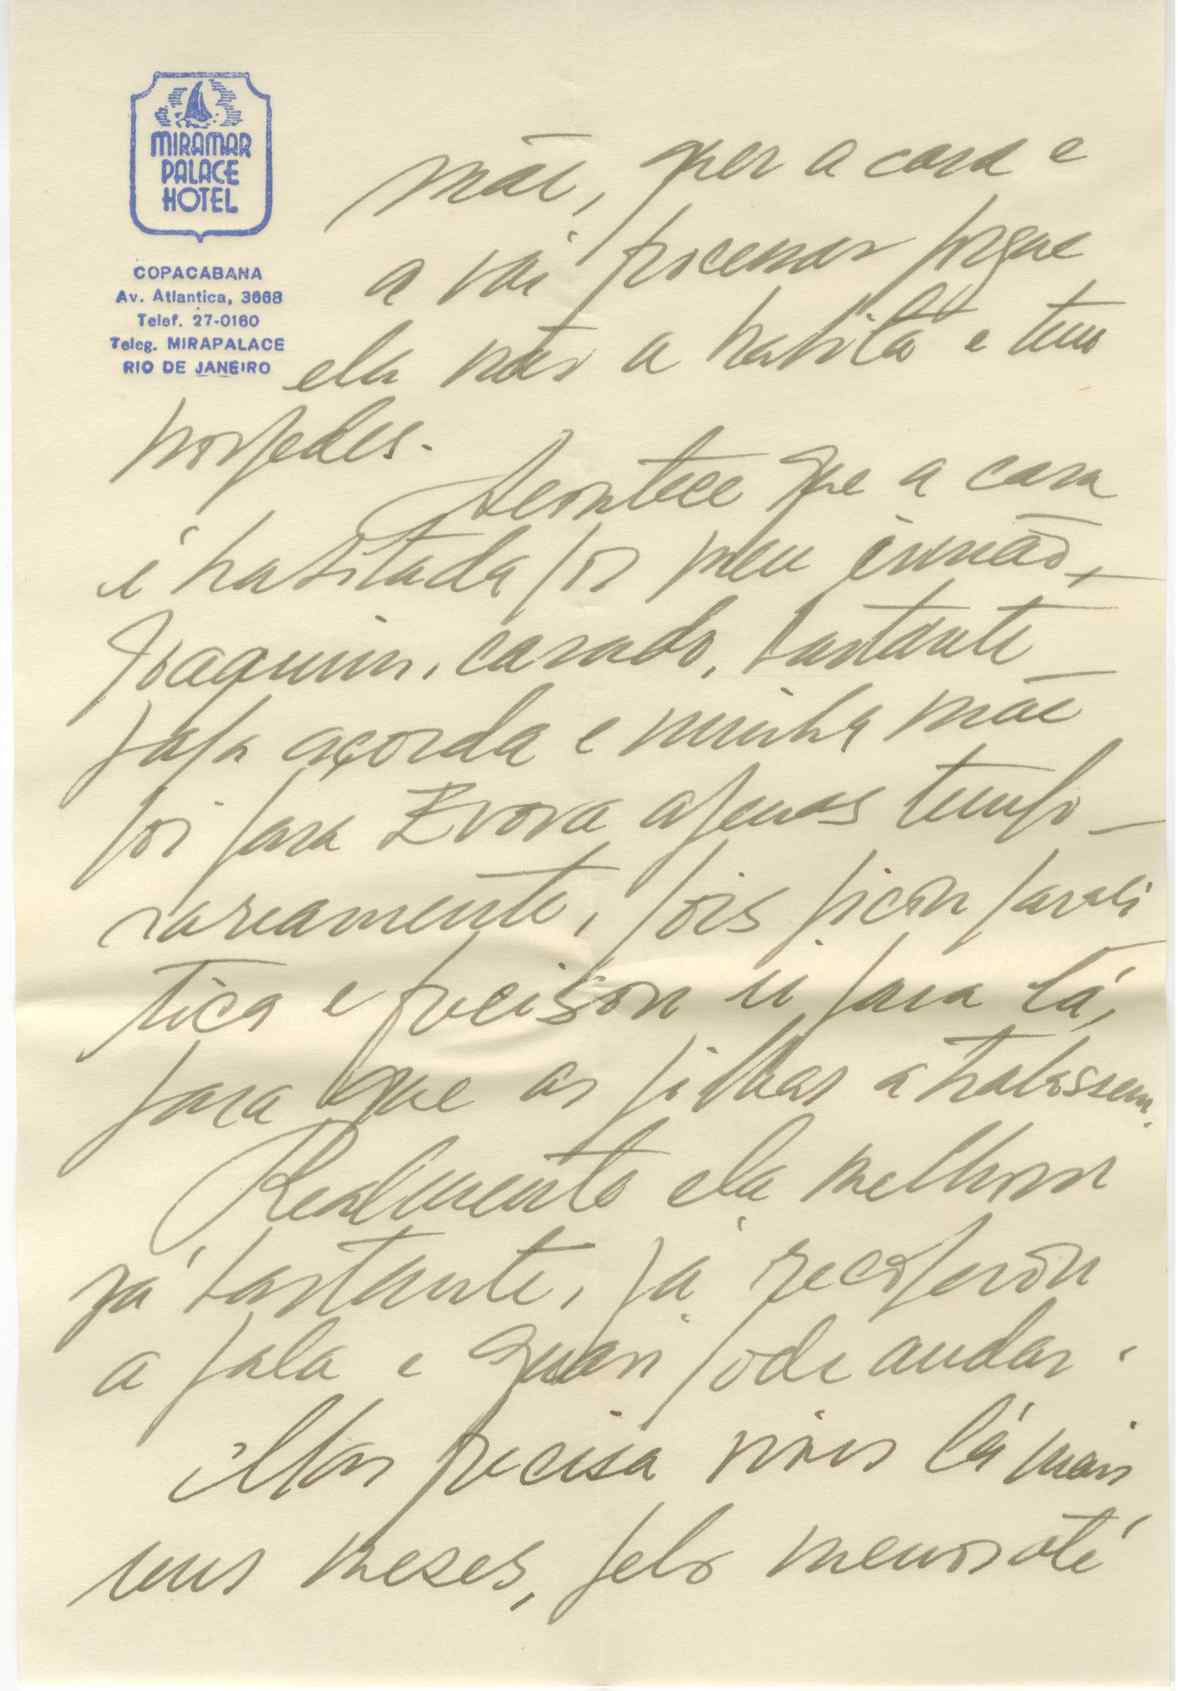 MIRAMAR
PALACE
HOTEL
COPACABANA
Av. Atlantica, 3668
Telef. 27-0160
Teleg. MIRAPALACE
RIO DE JANEIRO
mãe, quer a casa e
a vai processar porque
ela não a habita e tem
hospedes.
Acontece que a casa
é habitada por meu irmão,
Joaquim, casado, bastante
açorda e minha mãe
foi para Evora apenas tempo-
rareamente, pois ficou parali
tica e precisou ir para lá,
para que as filhas a tratassem.
Realmente ela melhorou
já bastante, já recuperou
a fala e quasi pode andar.
Mas precisa viver lá mais
uns meses, pelo menos até